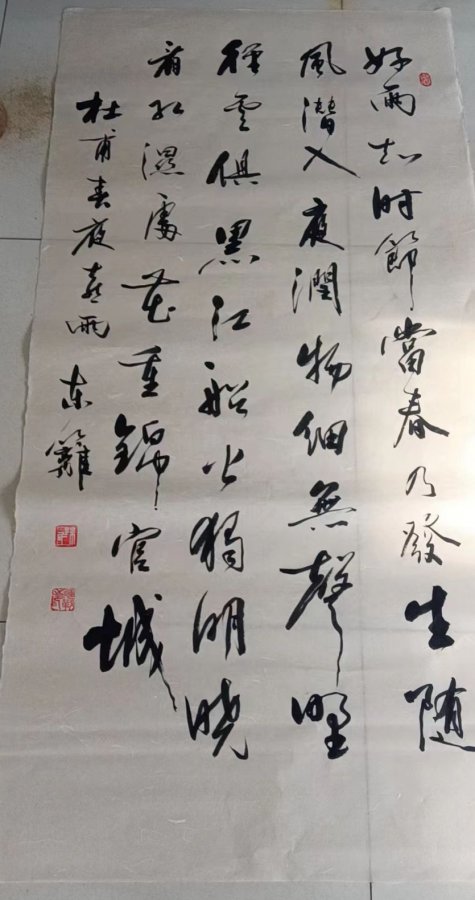 好雨知时節當春乃發生随
風潜入夜潤物细無聲野
徑雲俱黑江船火獨明晓
看红濕處花重錦官城
杜甫春夜喜雨 东篱